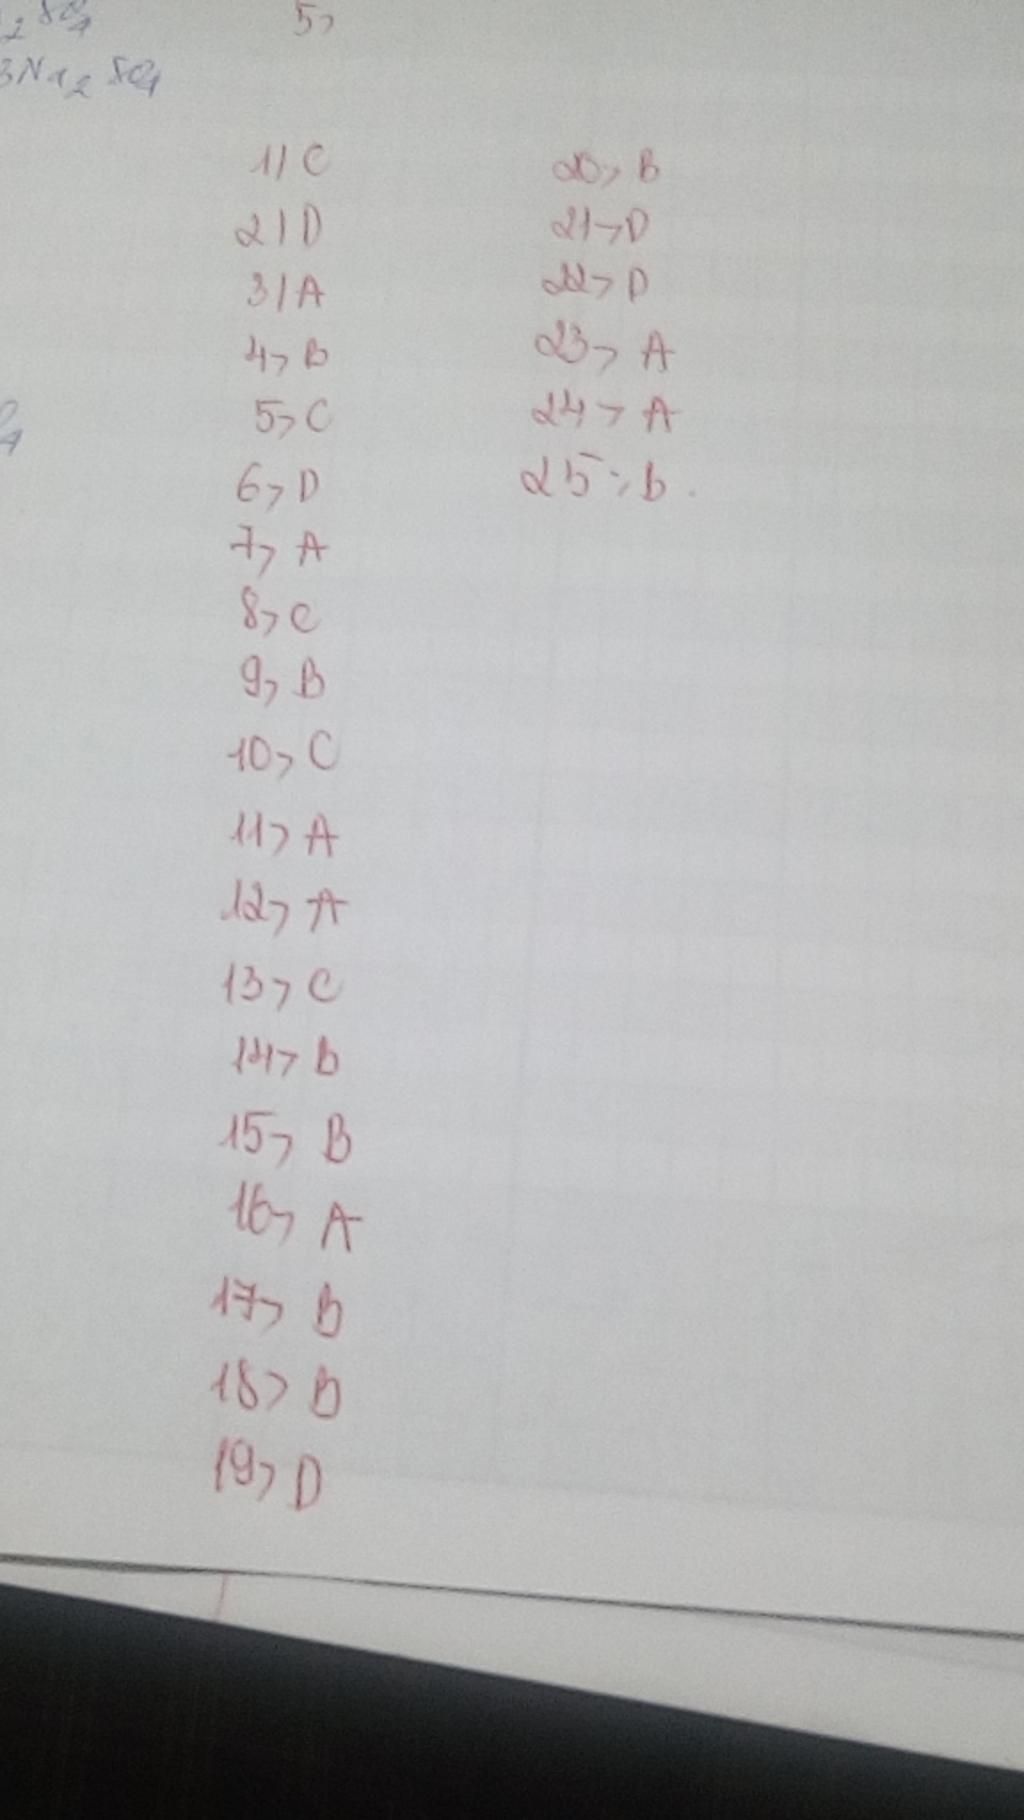 2SO4
5>
3Na2SO4
1) C
2) D
3) A
4> B
5> C
6> D
7> A
8> C
9> B
10> C
11> A
12> A
13> C
14> B
15> B
16> A
17> B
18> B
19> D
20> B
21> D
22> D
23> A
24> A
25> B.